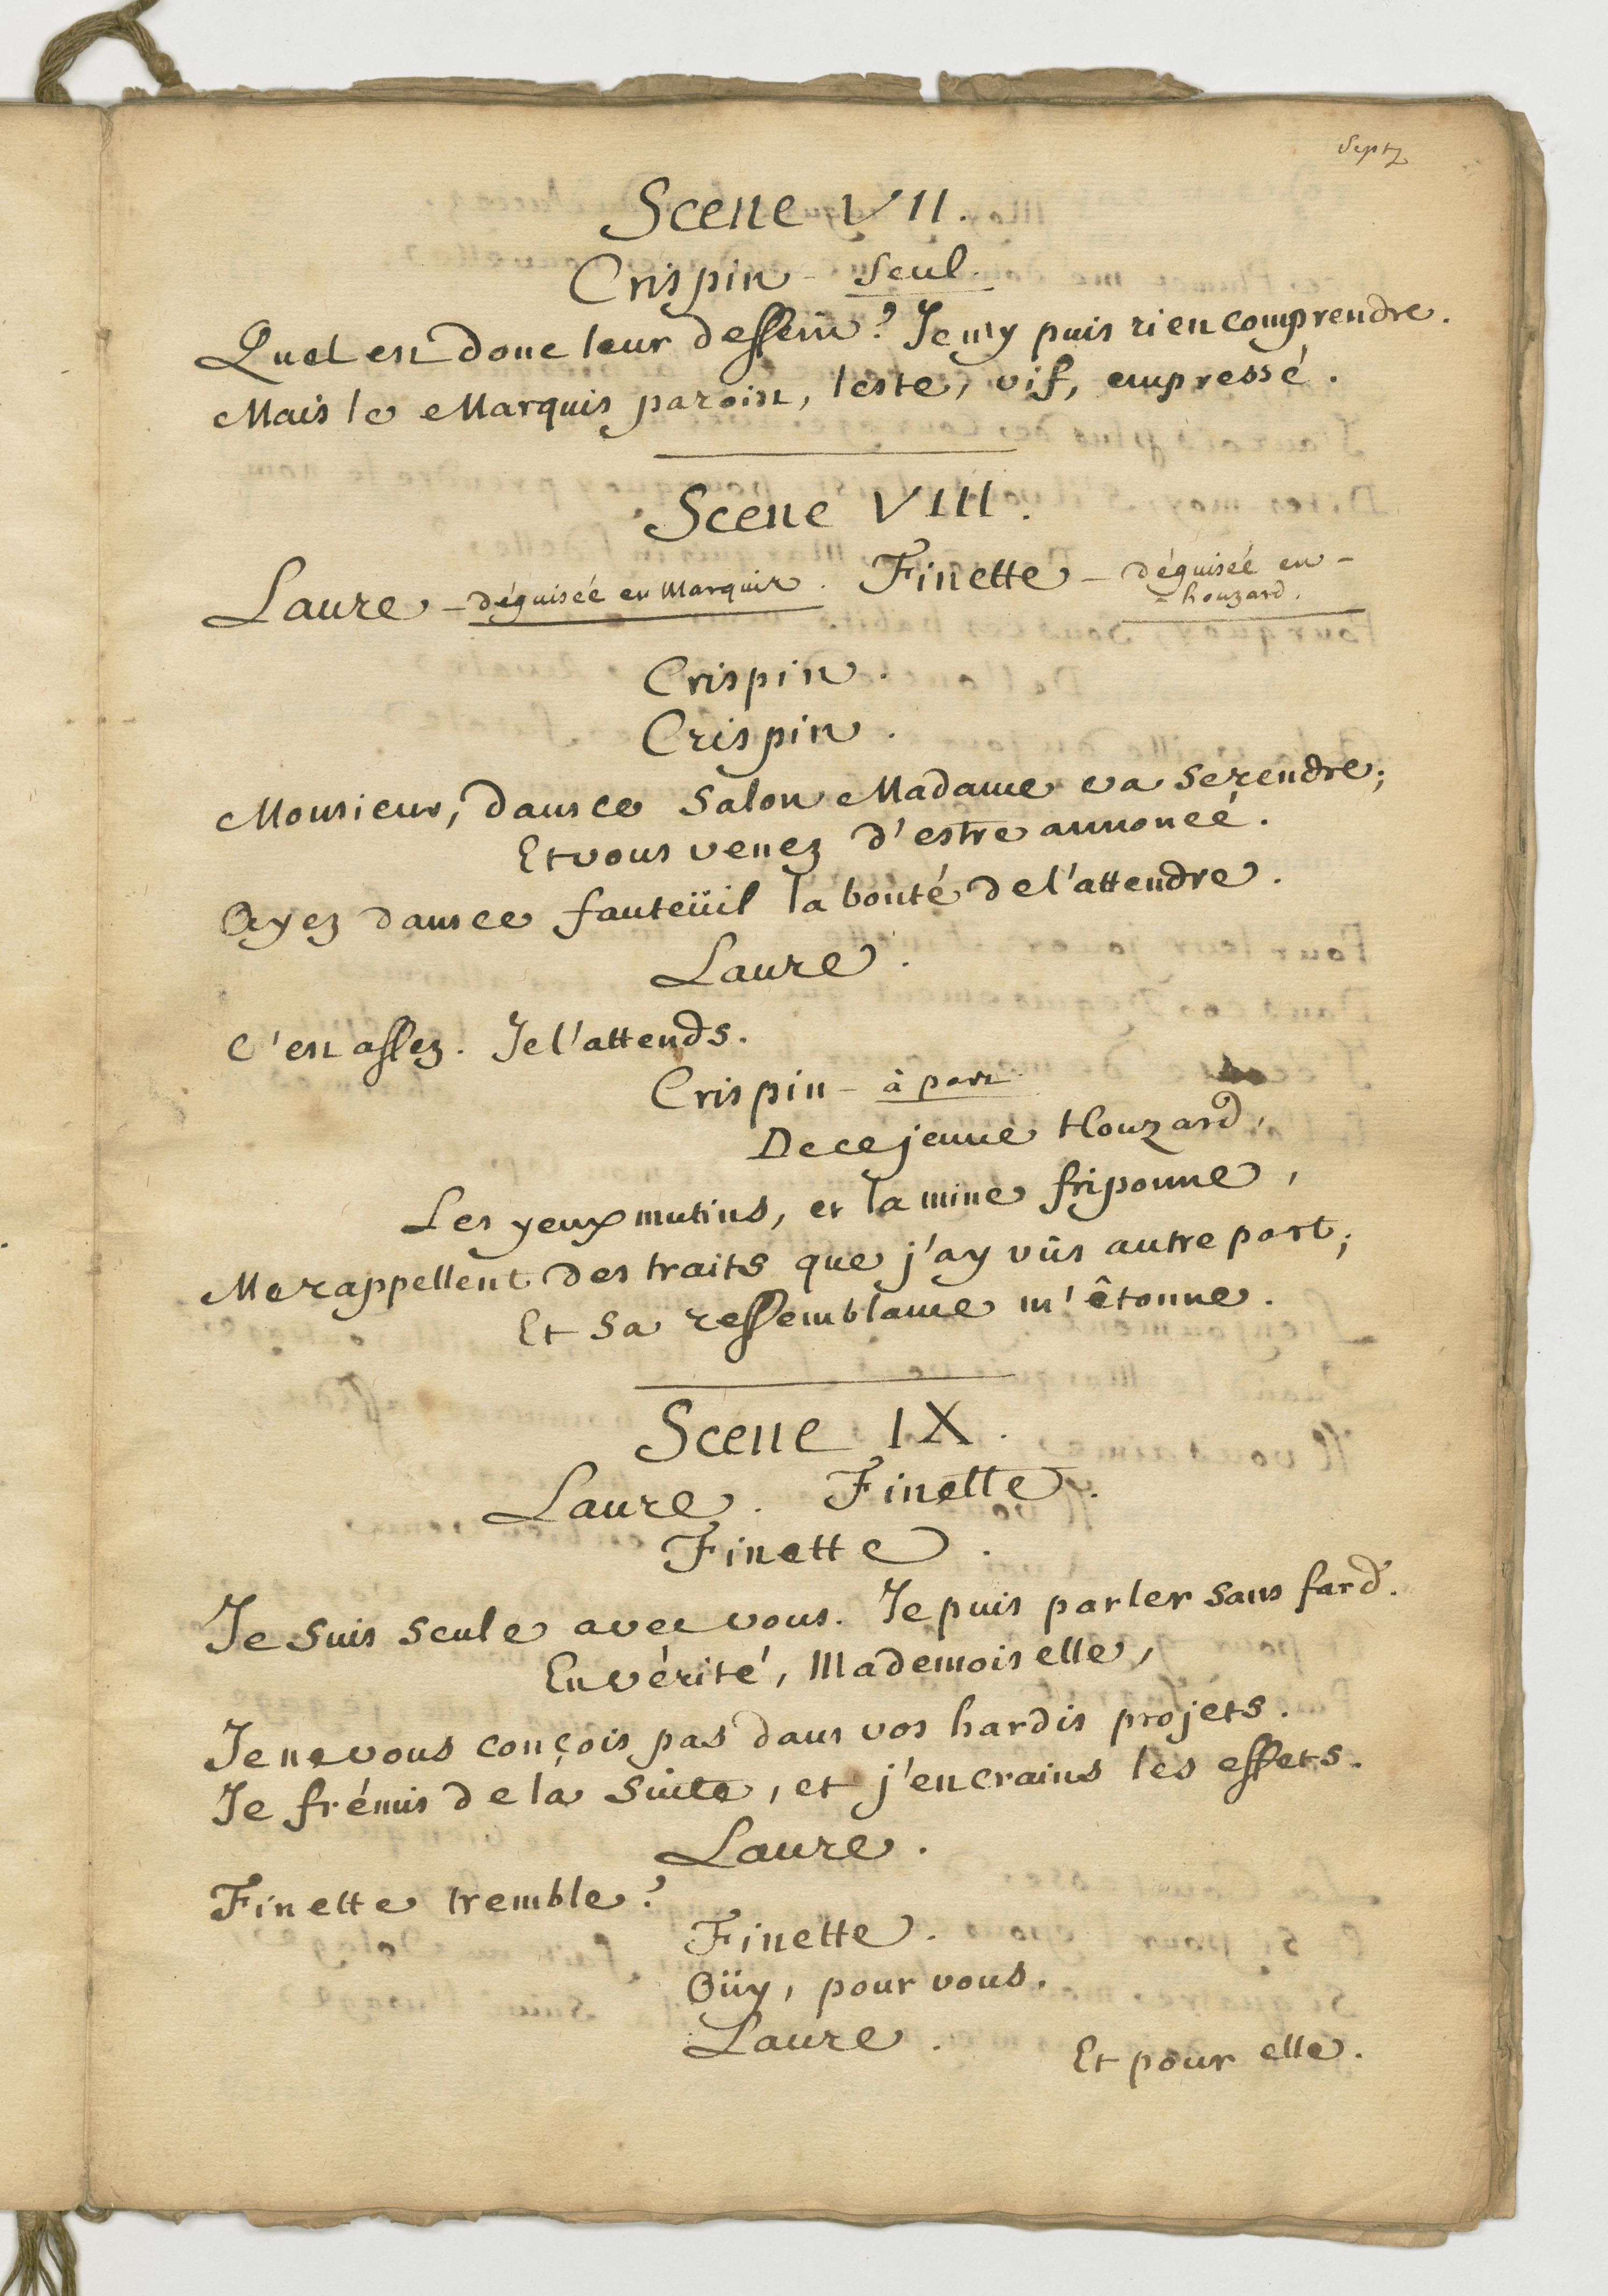 Sept
Scene VII.
Crispin - Seul.
Quel est donc leur dessein? Je n'y puis rien comprendre.
Mais le Marquis paroist, leste, vif, empressé.
Scene VIII.
Laure - déguiseé en Marquis. Finette - déguiseé en -
= houzard.
Crispin.
Crispin.
Monsieur, dans ce Salon Madame va se rendre;
Et vous venez d'estre annoncé.
Ayez dans ce fauteüil la bonté de l'attendre.
Laure.
C'est assez. Je l'attends.
Crispin - à part
De ce jeune Houzard,
Les yeux mutins, et la mine friponne,
Me rappellent des traits que j'ay vûs autre part;
Et sa ressemblance m'êtonne.
Scene IX.
Laure. Finette.
Finette.
Je suis seule avec vous. Je puis parler sans fard.
En vérité, Mademoiselle,
Je ne vous conçois pas dans vos hardis projets.
Je frémis de la suite, et j'en crains les effets.
Laure.
Finette tremble?
Finette.
Oüy, pour vous.
Laure.
Et pour elle.